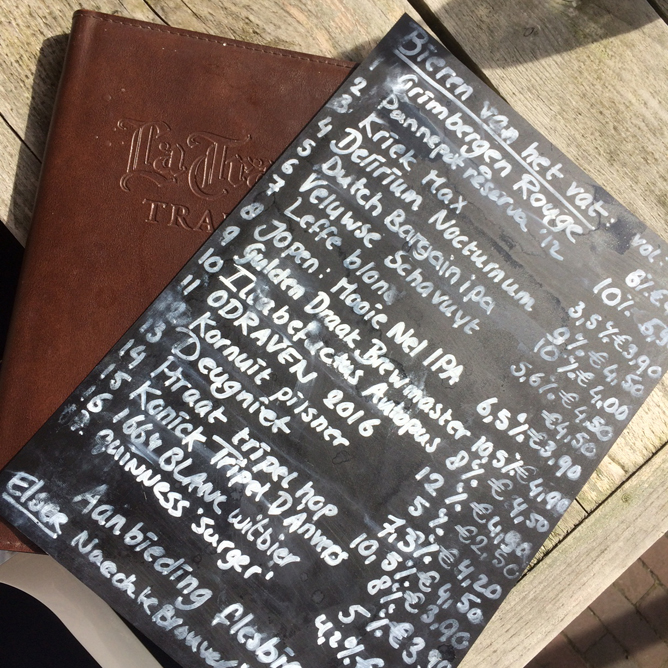 La Tra
TRA
Bieren van het vat.
vol.
Grimbergen Rouge 8%
2 Pannepot reserva 12 10%
3 Kriek Max 3,5% €3,90
4 Delirium Nocturnum 9% €4,50
5 Dutch Bargain ipa 10% €4,00
6 Veluwse Schavuyt 5,6% €4,50
7 Leffe blond €4,50
8 Jopen: Mooie Nel IPA 6,5% €3,90
9 Gulden Draak Brewmaster 10,5% €4,90
10 Autopus 8% €4,50
11 ODRAVEN 2016 12% €4,90
Kornuit pilsner 5% €2,50
13 Deugniet 7,3% €4,20
14 Straat tripel hop 10,5% €4,50
15 Konick Tripel DAnvers 8% €3,90
16 1664 BLANC witbier 5%
GUINNESS 'surger' 4,2%
Aanbieding